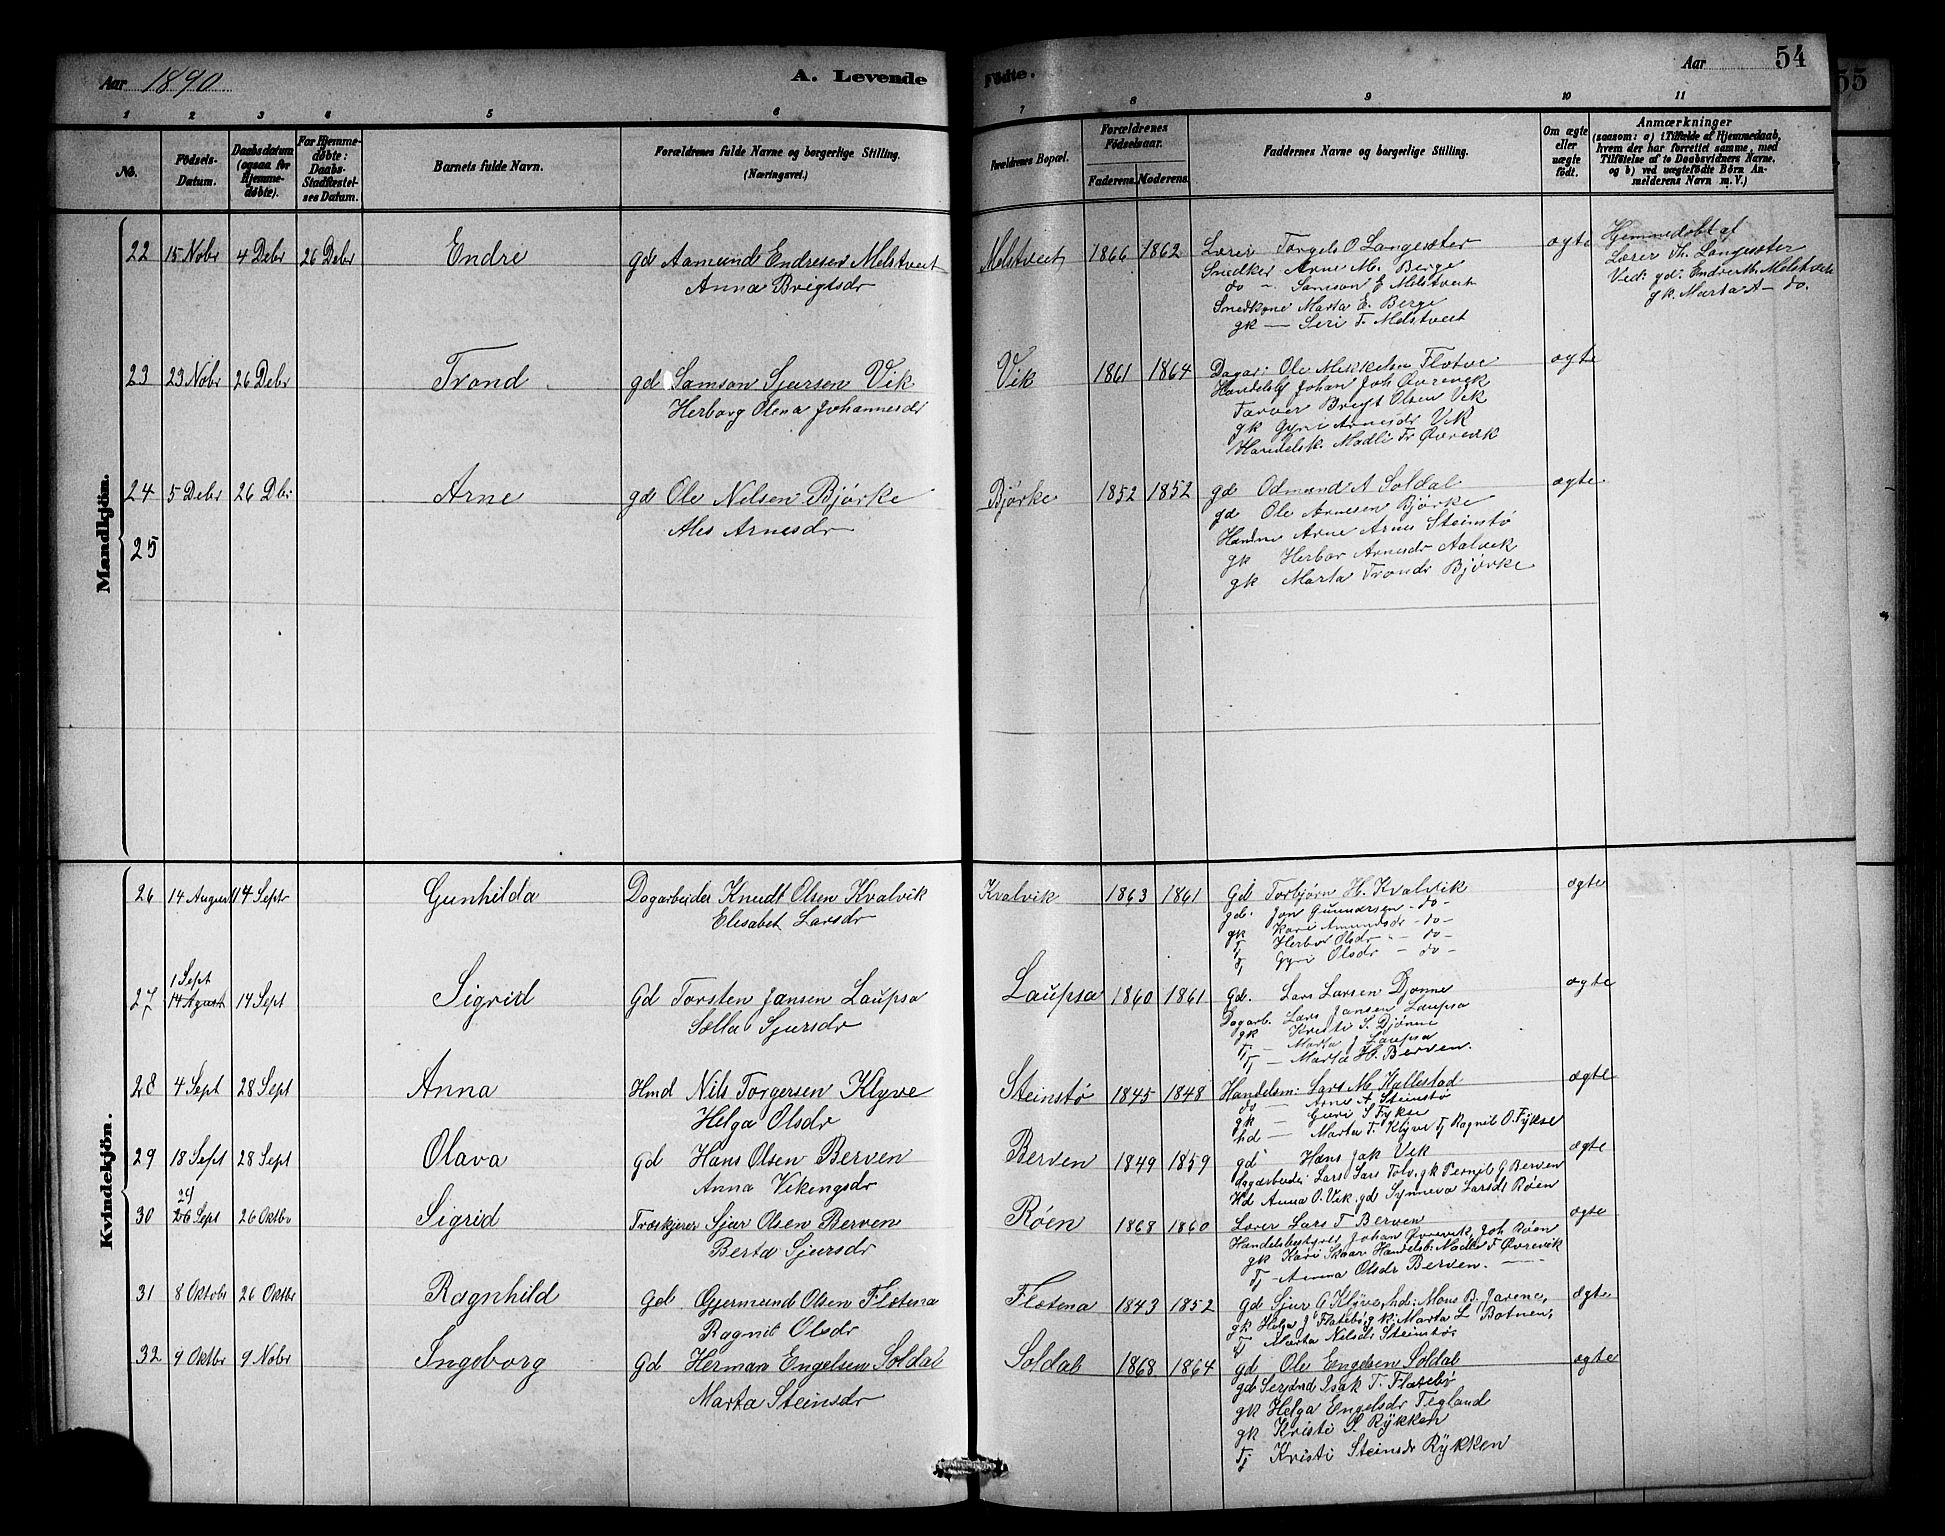 Aar 1890
A. Levende
Fødte.
Aar
54
55
1 2 3 6 5 6 7 8 9 10 11
No.
Fødsels-
Datum.
Daabsdatum
(ogsaa for
Hjemme-
døbte).
For Hjemme-
døbte:
Daabs-
Stadfæstel-
ses Datum.
Barnets fulde Navn.
Forældrenes fulde Navne og borgerlige Stilling.
(Næringsvei.)
Forældrenes Bopæl.
Forældrenes
Fødselsaar.
Faderens. Moderens.
Faddernes Navne og borgerlige Stilling.
Om ægte
eller
uægte
født.
Anmærkninger
(saasom: a) i Tilfælde af Hjemmedaab,
hvem der har forrettet samme, med
Tilføielse af to Daabsvidners Navne,
og b) ved uægtefødte Børn An-
melderens Navn m. V.)
Mandkjøn.
22 15 Nobr 4 Debr 26 Debr Endre gd Aamund Endresen Melstveit
Anna Brigtsdr
Melstveit 1866 1862 Lærer Torgels O Langesæter ægte
Smedker Arne M. Berge
do - Samson E Melstveit
Smedkone Marta E. Berge
gk — Seri T. Melstveit
Hjemmedøbt af
Lærer Th. Langesæter
Ved: gd: Endre M. Melstveit
gk. Marta A - do.
23 23 Nobr 26 Debr Trond gd Samson Sjursen Vik
Herborg Olena Johannesdr
Vik 1861 1864 Dagar: Ole Mikkelsen Flotve ægte
Handelsbf Johan Joh Øvrevik
Farver Brigt Olsen Vik
gk Gyri Arnesdr Vik
Handelsk. Madli Fr Øvrevik
24 5 Debr 26 Dbr Arne gd Ole Nelsen Bjørke
Ales Arnesdr
Bjørke 1852 1852 gd Odmund A Soldal ægte
gd Ole Arnesen Bjørke
Arne Arnes Steinstø
gk Herbor Arnesdr Aalvik
gk Marta Trondr Bjørke
25
Kvindekjøn.
26 14 August 14 Sept Gunhilda Dagarbeider Knudt Olsen Kvalvik
Elisabet Larsdr
Kvalvik 1863 1861 Gd Torbjørn H. Kvalvik ægte
gd. Jon Gunnarsen - do -
gk Kari Amundsdr - do
Tj Herbor Olsdr - do -
Tj Gyri Olsdr - do -
1 Sept
27 14 Agust 14 Sept Sigrid Gd Torsten Jansen Laupsa
Sella Sjursdr
Laupsa 1860 1861 Gd. Lars Larsen Djønne ægte
Dagarb. Lars Jansen Laupsa
gk Kristi S. Djønne
Tj - Marta J Laupsa
Tj - Marta H. Berven.
28 4 Sept 28 Sept Anna Hmd Nils Torgersen Klyve
Helga Olsdr
Steinstø 1845 1848 Handelsm: Lars M. Hallestad ægte
do - Arne A Steinstø
gk - Guri S Fykse
hd - Marta T. Klyve Tj Ragnil O. Fykse
29 18 Sept 28 Sept Olava gd Hans Olsen Berven
Anna Vikingsdr
Berven 1849 1859 gd Hans Jak Vik ægte
dagarbeider Lars Lars Tolv. gk Pernil G Berven
Hd Anna O. Vik. gd Synneva Larsdt Røen
29
30 26 Sept 26 Oktbr Sigrid Træskjærer Sjur Olsen Berven
Berta Sjursdr
Røen 1868 1860 Lærer Lars T Berven ægte
Handelsbestyrer Johan Øvrevik, Joh Røen
gk Kari Skaar Handelsb: Madle F Øvrevik
Tj - Amma Olsdr Berven.
31 8 Oktobr 26 Oktbr Ragnhild Gd Gjermund Olsen Flotena
Ragnil Olsdr
Flotena 1843 1852 gd Sjur G Klyve, hd: Mons B. Javene, ægte
gk Helga J Flatebø gk: Marta L Botnen,
Tj Marta Nelsdr Steinstø.
32 9 Oktbr 9 Nobr Ingeborg Gd Herman Engelsen Soldal
Marta Steinsdr
Soldal 1868 1864 gd Ole Engelsen Soldal ægte
gd Isak T. Flatebø
gk Helga Engelsdr Tegland
gk Kristi S. Rykken
Tj Kristi Steinsdr Rykken